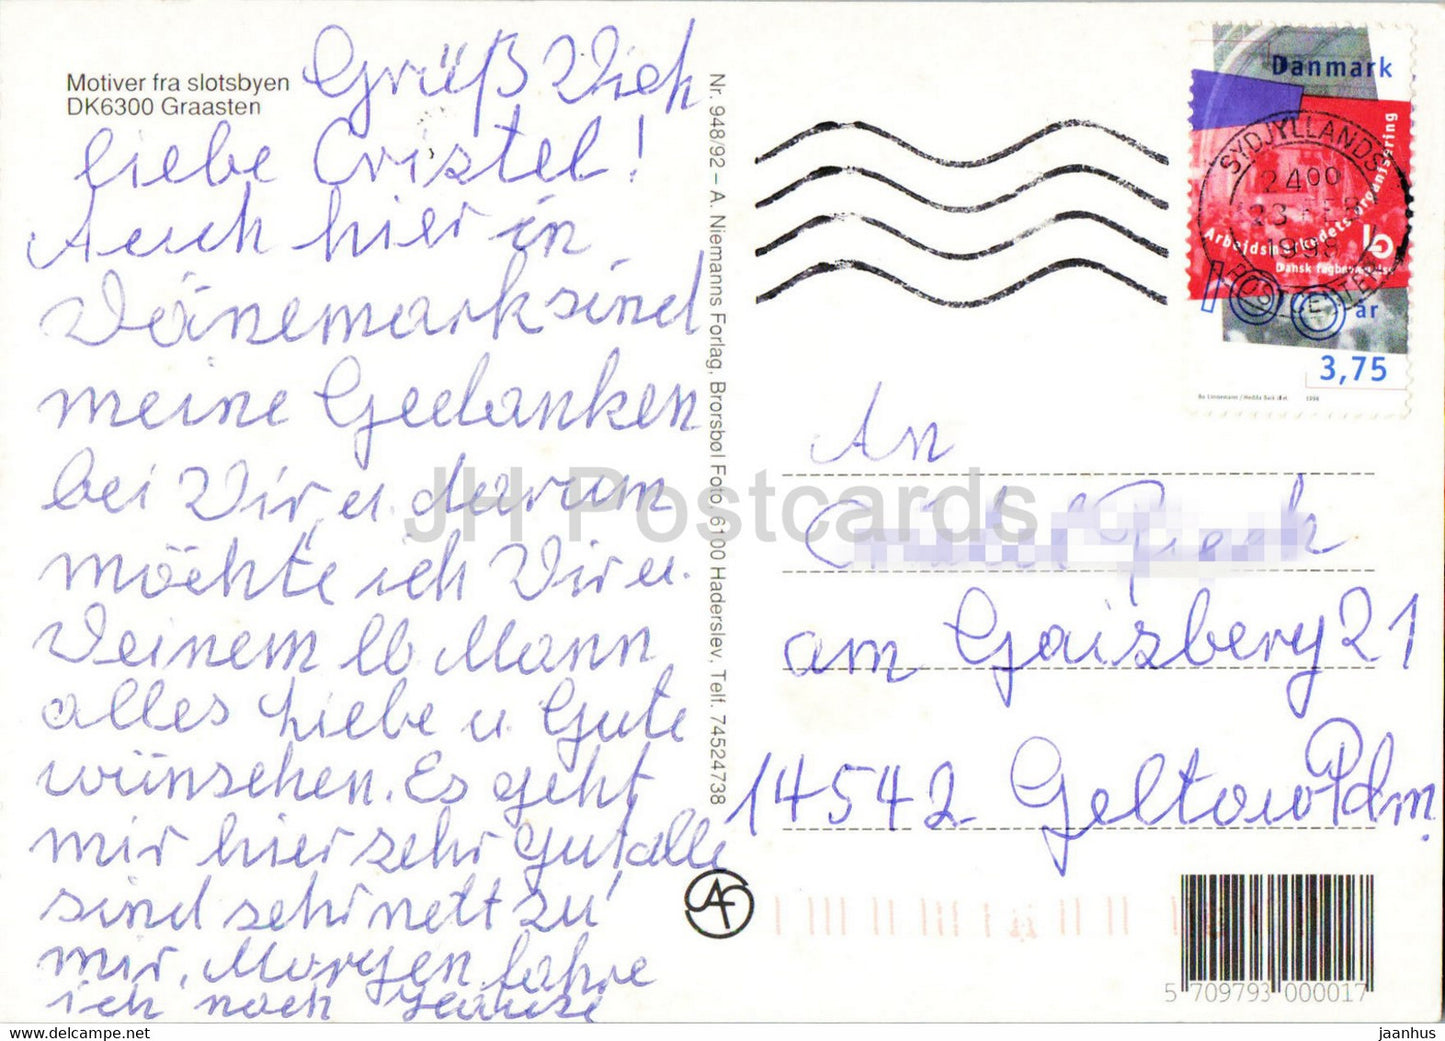 Motiver fra slotsbyen
DK6300 Graasten
Grüß Dich
liebe Cristel!
Auch hier in
Dänemark sind
meine Gedanken
bei Dir u. darum
möchte ich Dir u.
Deinem lb Mann
alles Liebe u Gute
wünschen. Es geht
mir hier sehr gut alle
sind sehr nett zu
mir. Morgen fahre
ich nach Hause
Nr. 948/92 – A. Niemanns Forlag, Brorsbøl Foto, 6100 Haderslev, Telf. 74524738
Danmark
Arbejdsmarkedets organisering
LO
Dansk fagbevægelse
100 år
3,75
1998
SYDJYLLANDS
24 00
23 FEB
1998
POSTCENTER
An
am Gaisberg 21
14542 Geltow Pdm.
AF
5 709793 000017
JH Postcards
jaanhus